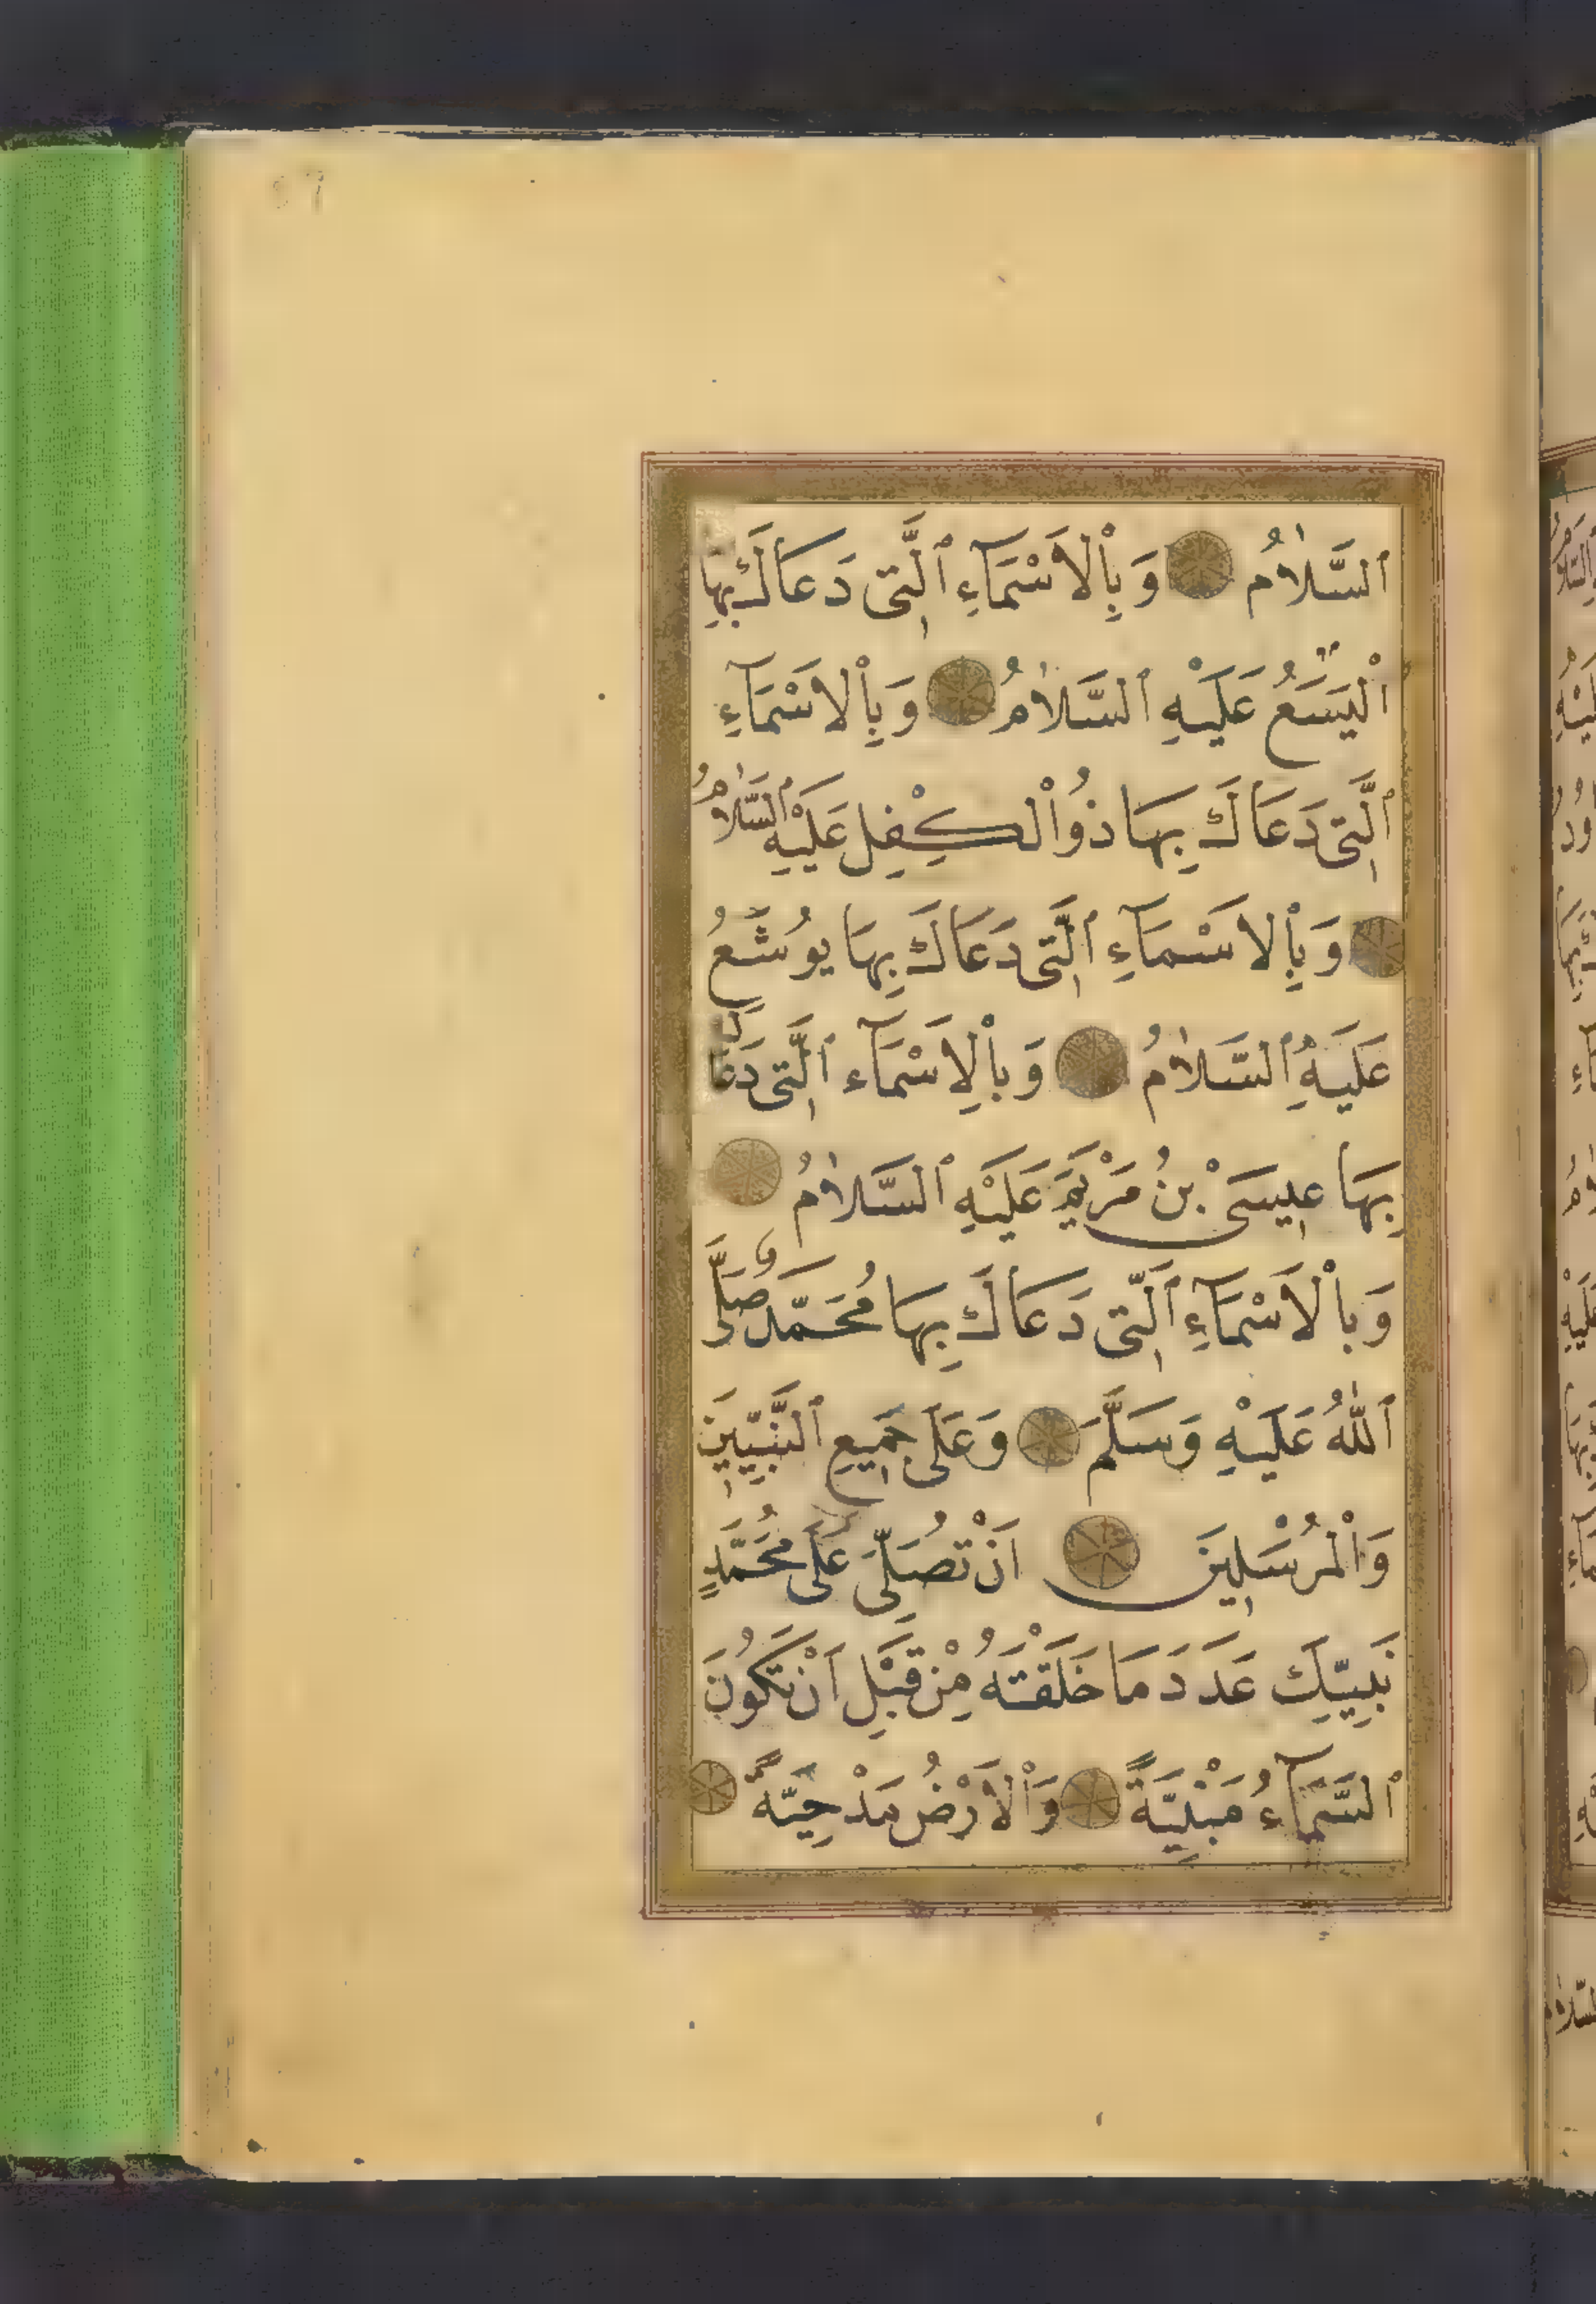 اَلسَّلَامُ وَبِالْاَسْمَآءِ الَّتِى دَعَاكَ بِهَا
اَلْيَسَعُ عَلَيْهِ السَّلَامُ وَبِالْاَسْمَآءِ
الَّتِى دَعَاكَ بِهَا ذُوالْكِفْلِ عَلَيْهِ السَّلَامُ
وَبِالْاَسْمَآءِ الَّتِى دَعَاكَ بِهَا يُوشَعُ
عَلَيْهِ السَّلَامُ وَبِالْاَسْمَآءِ الَّتِى دَعَاكَ
بِهَا عِيسَى بْنُ مَرْيَمَ عَلَيْهِ السَّلَامُ
وَبِالْاَسْمَآءِ الَّتِى دَعَاكَ بِهَا مُحَمَّدٌ صَلَّى
اللّٰهُ عَلَيْهِ وَسَلَّمَ وَعَلَى جَمِيعِ النَّبِيِّينَ
وَالْمُرْسَلِينَ اَنْ تُصَلِّىَ عَلَى مُحَمَّدٍ
نَبِيِّكَ عَدَدَ مَا خَلَقْتَهُ مِنْ قَبْلِ اَنْ تَكُونَ
السَّمَآءُ مَبْنِيَّةً وَالْاَرْضُ مَدْحِيَّةً